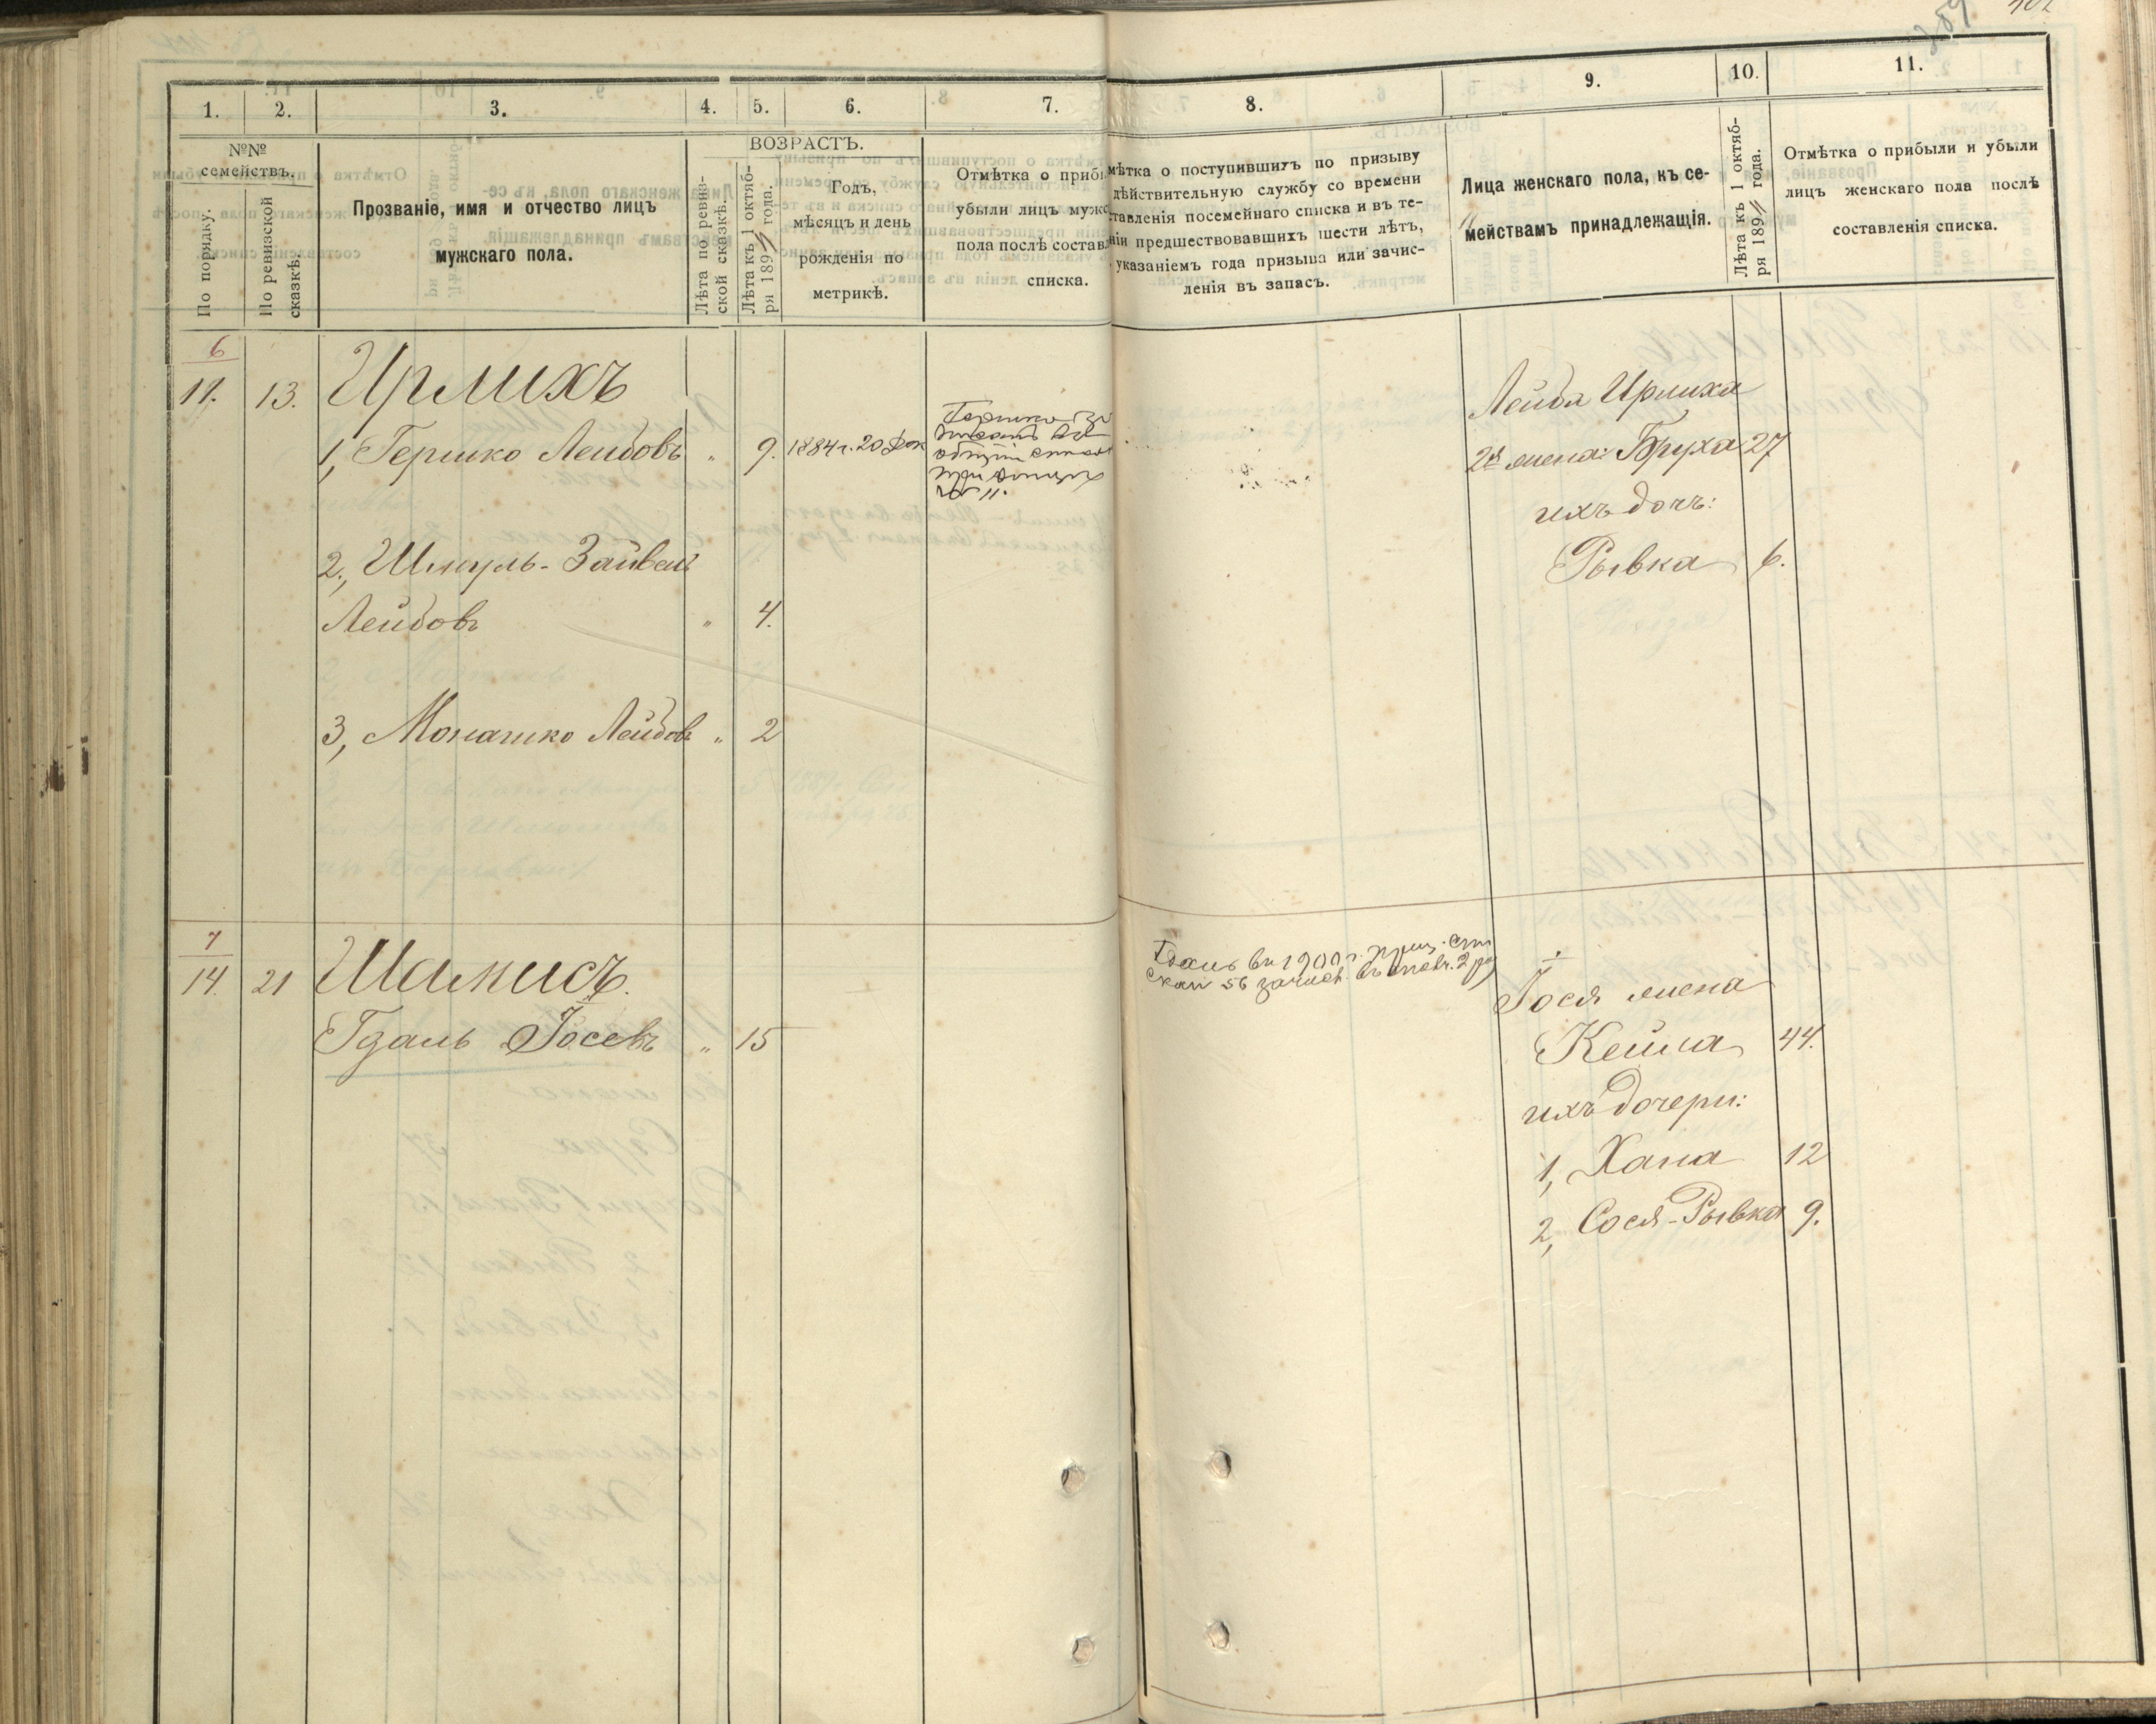 402
389
1.
2.
3.
4.
5.
6.
7.
8.
9.
10.
11.
№№
семействъ.
По порядку.
По ревизской
сказкѣ.
Прозваніе, имя и отчество лицъ
мужскаго пола.
Лѣта по ревиз-
ской сказкѣ.
ВОЗРАСТЪ.
Лѣта къ 1 октяб-
ря 189 года.
Годъ,
мѣсяцъ и день
рожденія по
метрикѣ.
Отмѣтка о прибы
убыли лицъ мужс
пола послѣ составл
списка.
мѣтка о поступившихъ по призыву
дѣйствительную службу со времени
ставленія посемейнаго списка и въ те-
ніи предшествовавшихъ шести лѣтъ,
указаніемъ года призыва или зачис-
ленія въ запасъ.
Лица женскаго пола, къ се-
мействамъ принадлежащія.
Лѣта къ 1 октяб-
ря 189 года.
Отмѣтка о прибыли и убыли
лицъ женскаго пола послѣ
составленія списка.
6
11. 13. Ирлихъ
1, Гершко Лейбовъ " 9. 1884 г. 20 Дек
Гершко
общій
при
№ 11.
2., Шмуль-Зайвель
Лейбовъ " 4.
3, Монашко Лейбовъ " 2
Лейба Ирлиха
2я жена: Бруха 27
ихъ дочь:
Рывка 6.
7
14. 21 Шамисъ.
Гдаль Іосевъ " 15
Гдаль въ 1900 г. приз. спи
скам 56 зачисл. въ ополч. 2 раз
Іося жена
Кейла 44.
ихъ дочери:
1, Хана 12
2, Сося-Рывка 9.